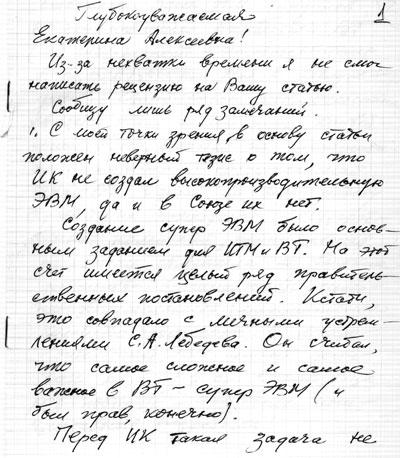 1
Глубокоуважаемая
Екатерина Алексеевна!
Из-за нехватки времени я не смог
написать рецензию на Вашу статью.
Сообщу лишь ряд замечаний.
1. С моей точки зрения, в основу статьи
положен неверный тезис о том, что
ИК не создал высокопроизводительную
ЭВМ, да и в Союзе их нет.
Создание супер ЭВМ было основ-
ным заданием для ИТМ и ВТ. На этот
счет имеется целый ряд правитель-
ственных постановлений. Кстати,
это совпадало с личными устрем-
лениями С.А. Лебедева. Он считал,
что самое сложное и самое
важное в ВТ – супер ЭВМ (и
был прав, конечно).
Перед ИК такая задача не